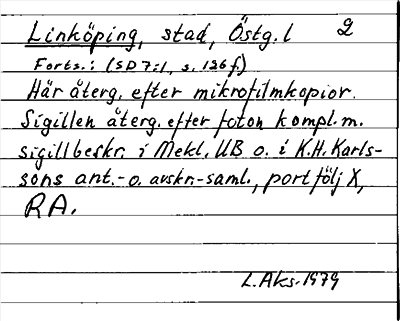 Linköping, stad, Östg. l 2
Forts.: (SD 7:1, s. 136 f)
Här återg. efter mikrofilmkopior.
Sigillen återg. efter foton kompl. m.
sigillbeskr. i Mekl. UB o. i K.H. Karls-
sons ant.- o. avskr.-saml., portfölj X,
RA.
L. Aks. 1979